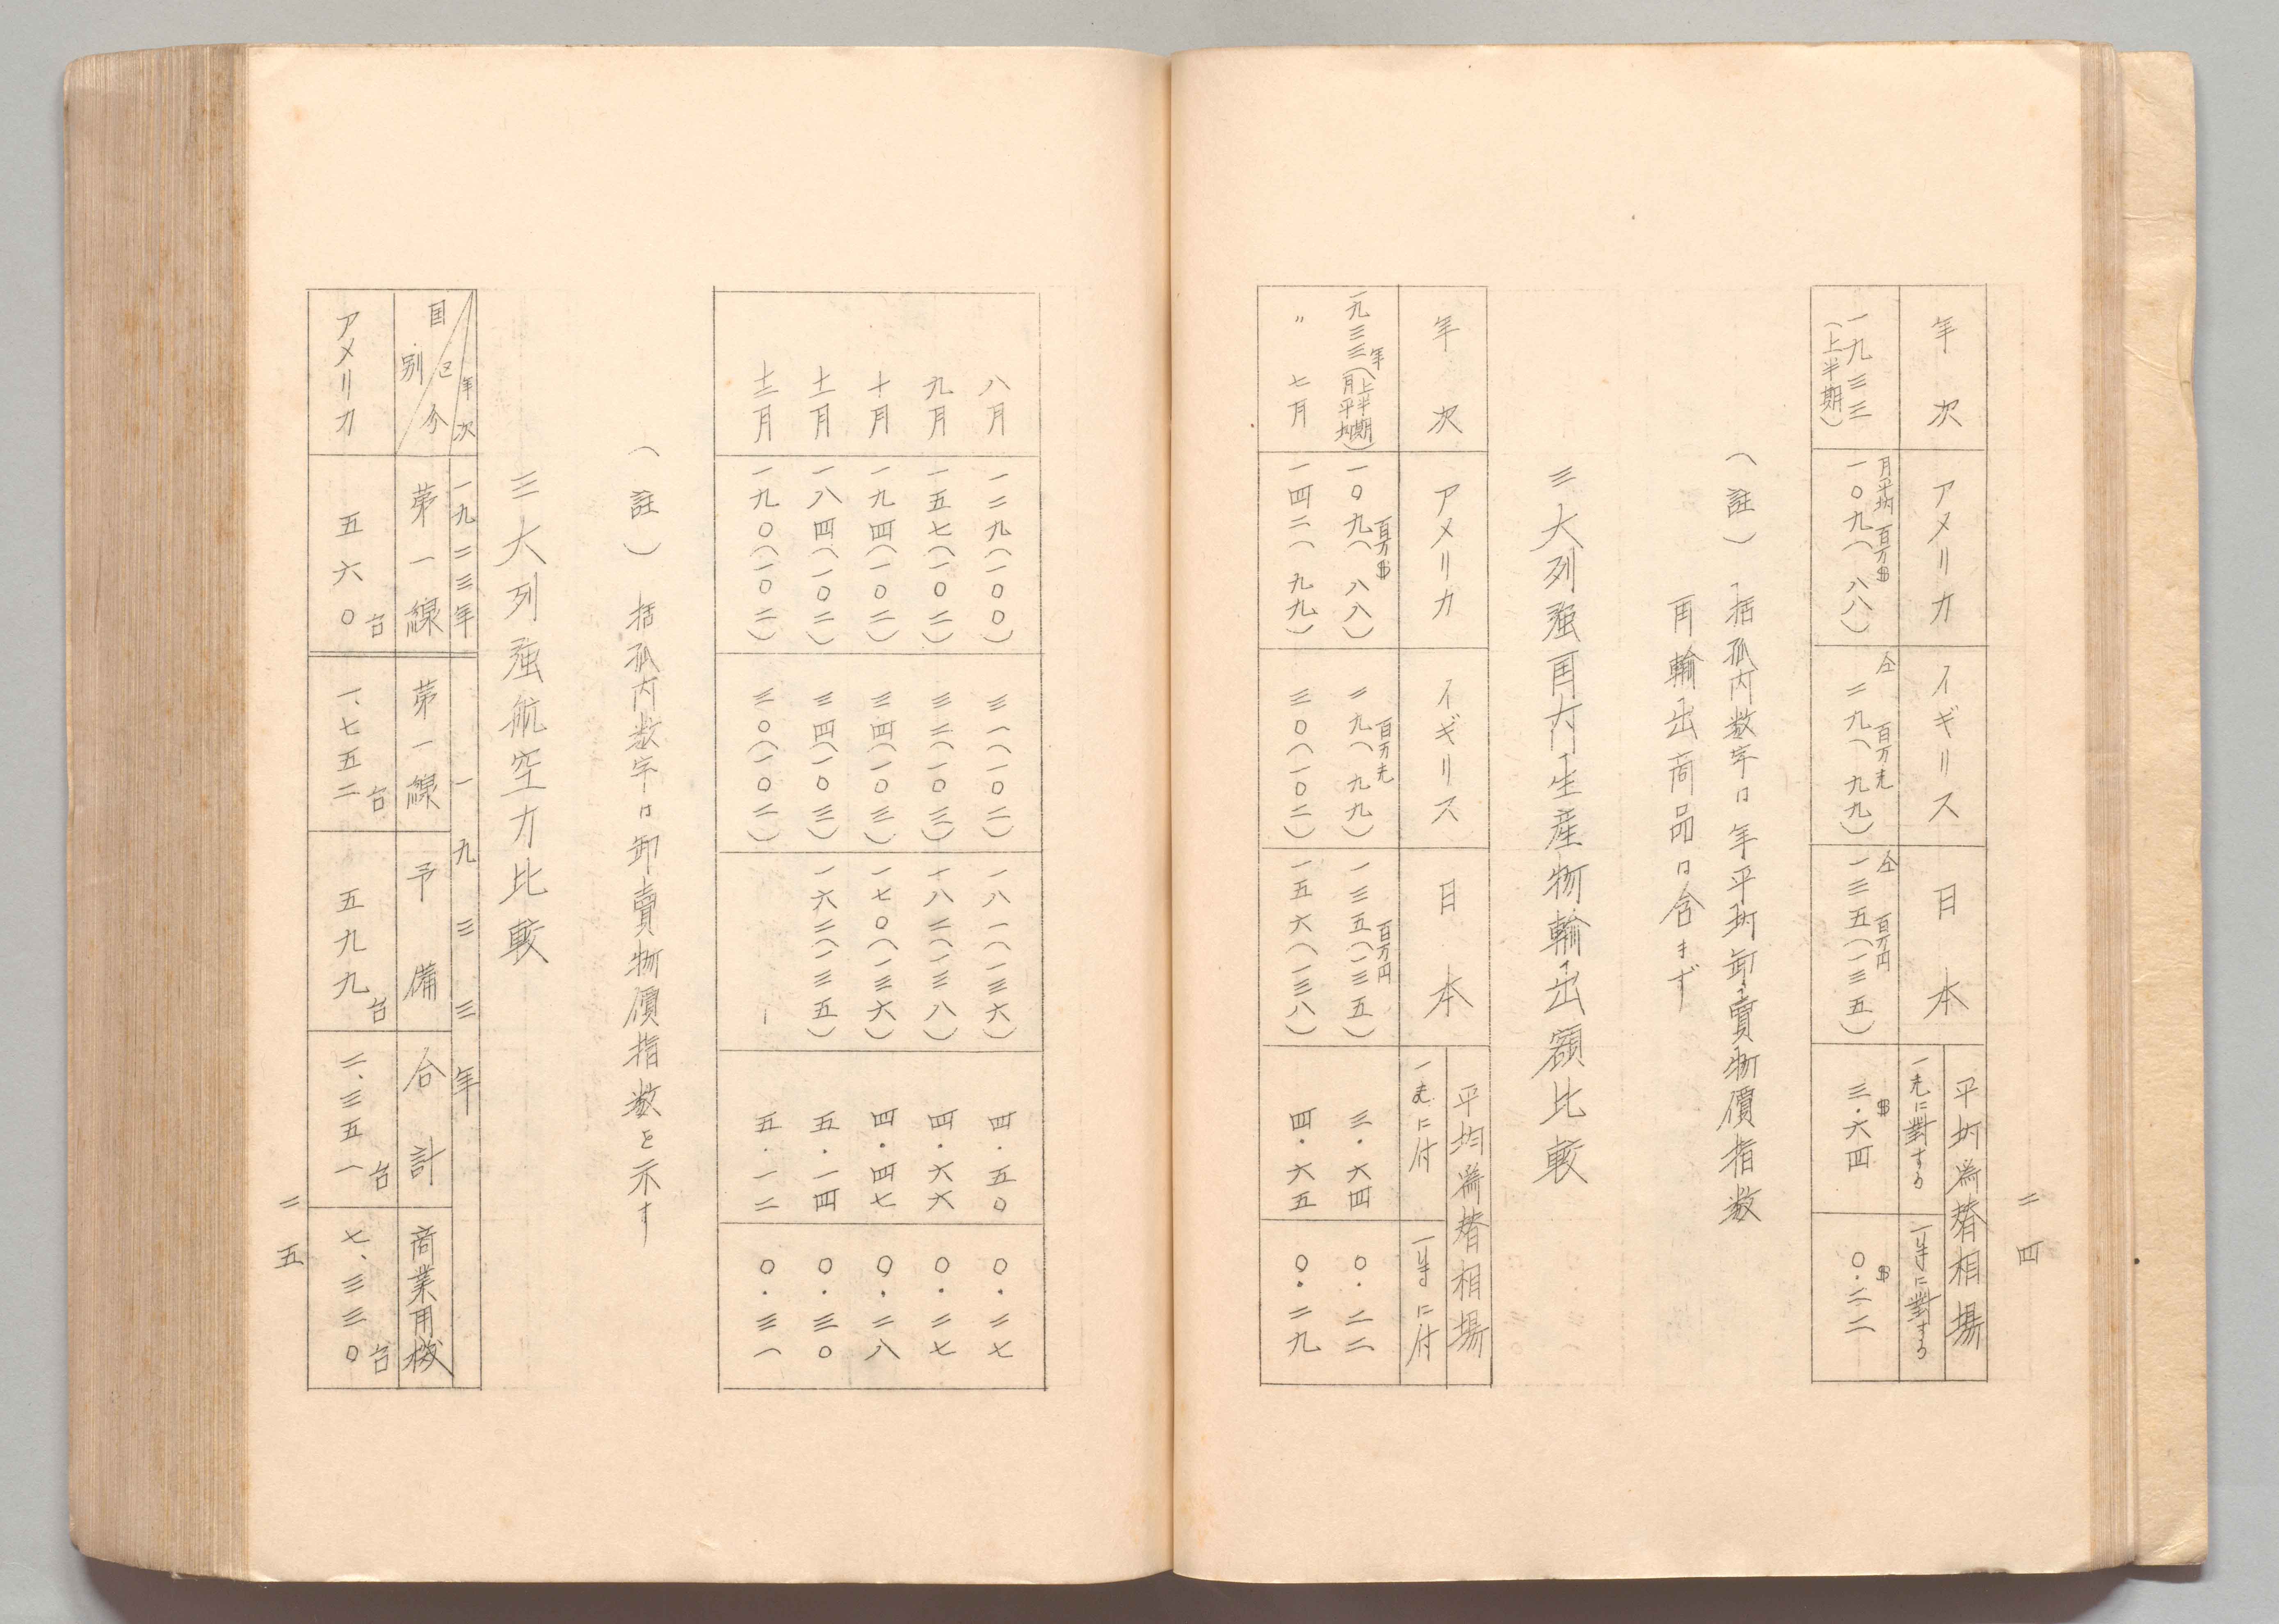 二四
年次
アメリカ
イギリス
日本
平均為替相場
に對する
に對する
一九三三
(上半期)
月平均 百万$
一〇九(八八)
仝 百万
二九(九九)
仝 百万円
一三五(一三五)
$
三・六四
$
〇・二二
(註) 括孤内数字ハ年平均卸賣物價指数
再輸出商品ハ含まず
三大列強国内生産物輸出額比較
年次
アメリカ
イギリス
日本
平均為替相場
に付
に付
一九三三年(上半期月平均)
百万$
一〇九(八八)
百万
二九(九九)
百万円
一三五(一三五)
三・六四
〇・二二
〃 七月
一四二(九九)
三〇(一〇二)
一五六(一三八)
四・六五
〇・二九
八月
一二九(一〇〇)
三一(一〇二)
一八一(一三六)
四・五〇
〇・二七
九月
一五七(一〇二)
三二(一〇三)
一八二(一三八)
四・六六
〇・二七
十月
一九四(一〇二)
三四(一〇三)
一七〇(一三六)
四・四七
〇・二八
十一月
一八四(一〇二)
三四(一〇三)
一六二(一三五)
五・一四
〇・三〇
十二月
一九〇(一〇二)
三〇(一〇二)
―
五・一二
〇・三一
(註) 括孤内数字ハ卸賣物價指数を示す
三大列強航空力比較
年次
区分
国別
一九二三年
一九三三年
第一線
第一線
予備
合計
商業用機
アメリカ
五六〇台
一、七五二台
五九九台
二、三五一台
七、三三〇台
二五